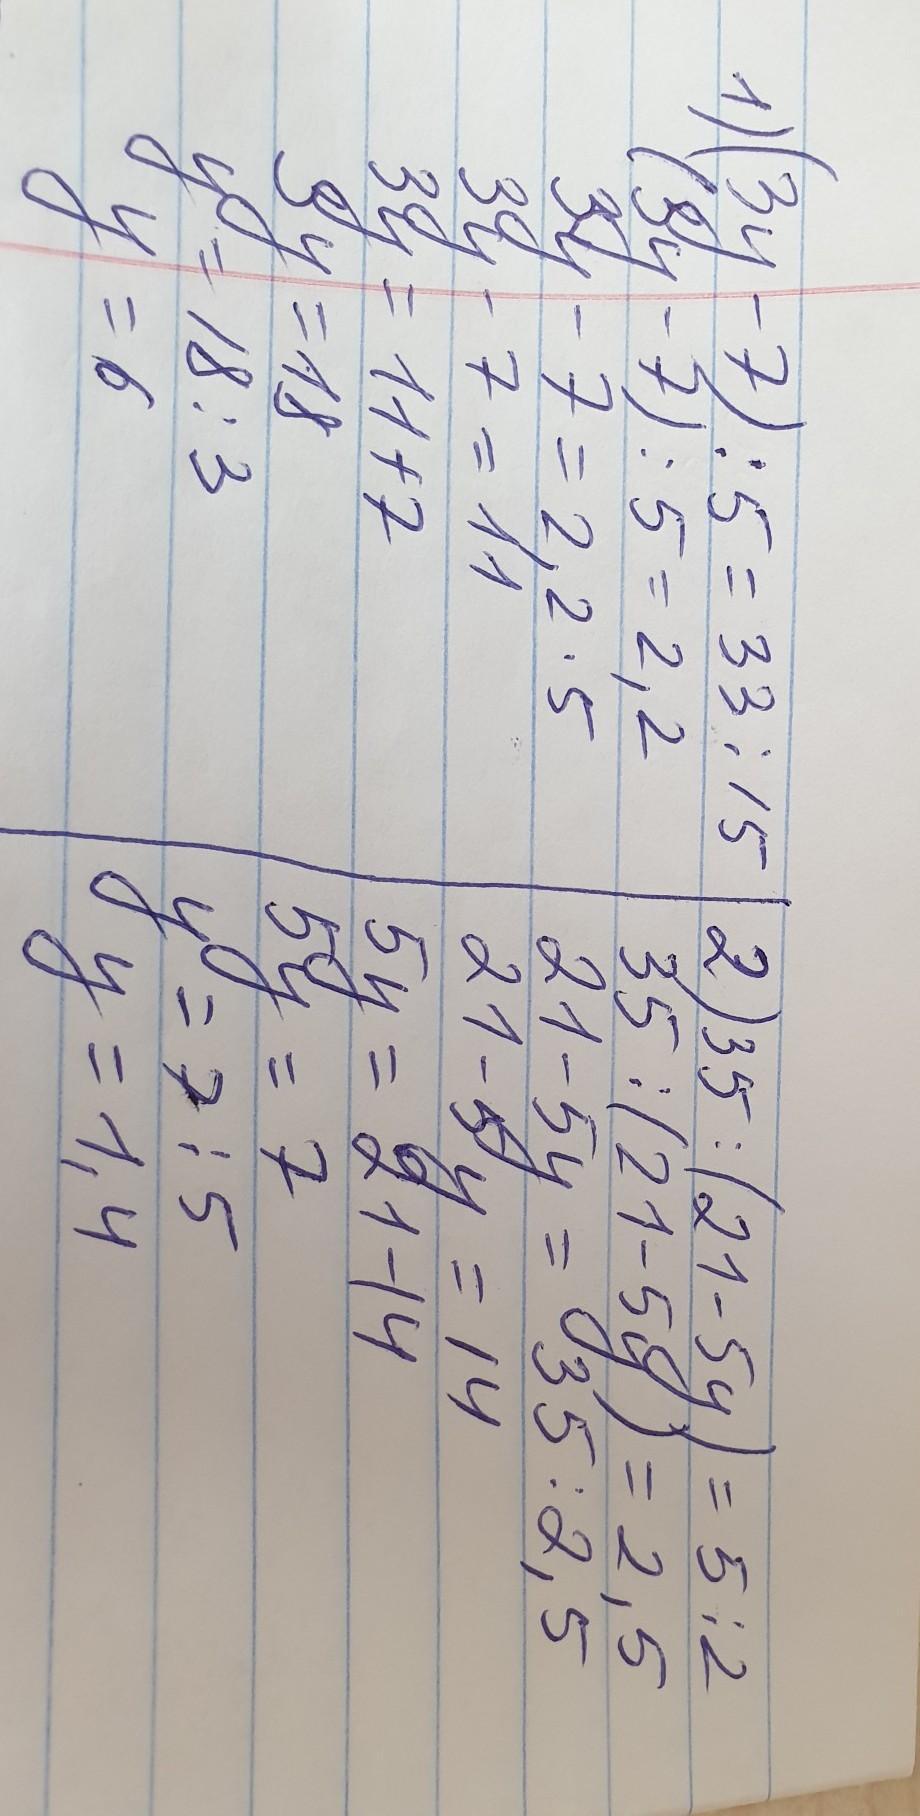 1) (3y - 7) : 5 = 33 : 15
(3y - 7) : 5 = 2,2
3y - 7 = 2,2 · 5
3y - 7 = 11
3y = 11 + 7
3y = 18
y = 18 : 3
y = 6
2) 35 : (21 - 5y) = 5 : 2
35 : (21 - 5y) = 2,5
21 - 5y = 35 : 2,5
21 - 5y = 14
5y = 21 - 14
5y = 7
y = 7 : 5
y = 1,4